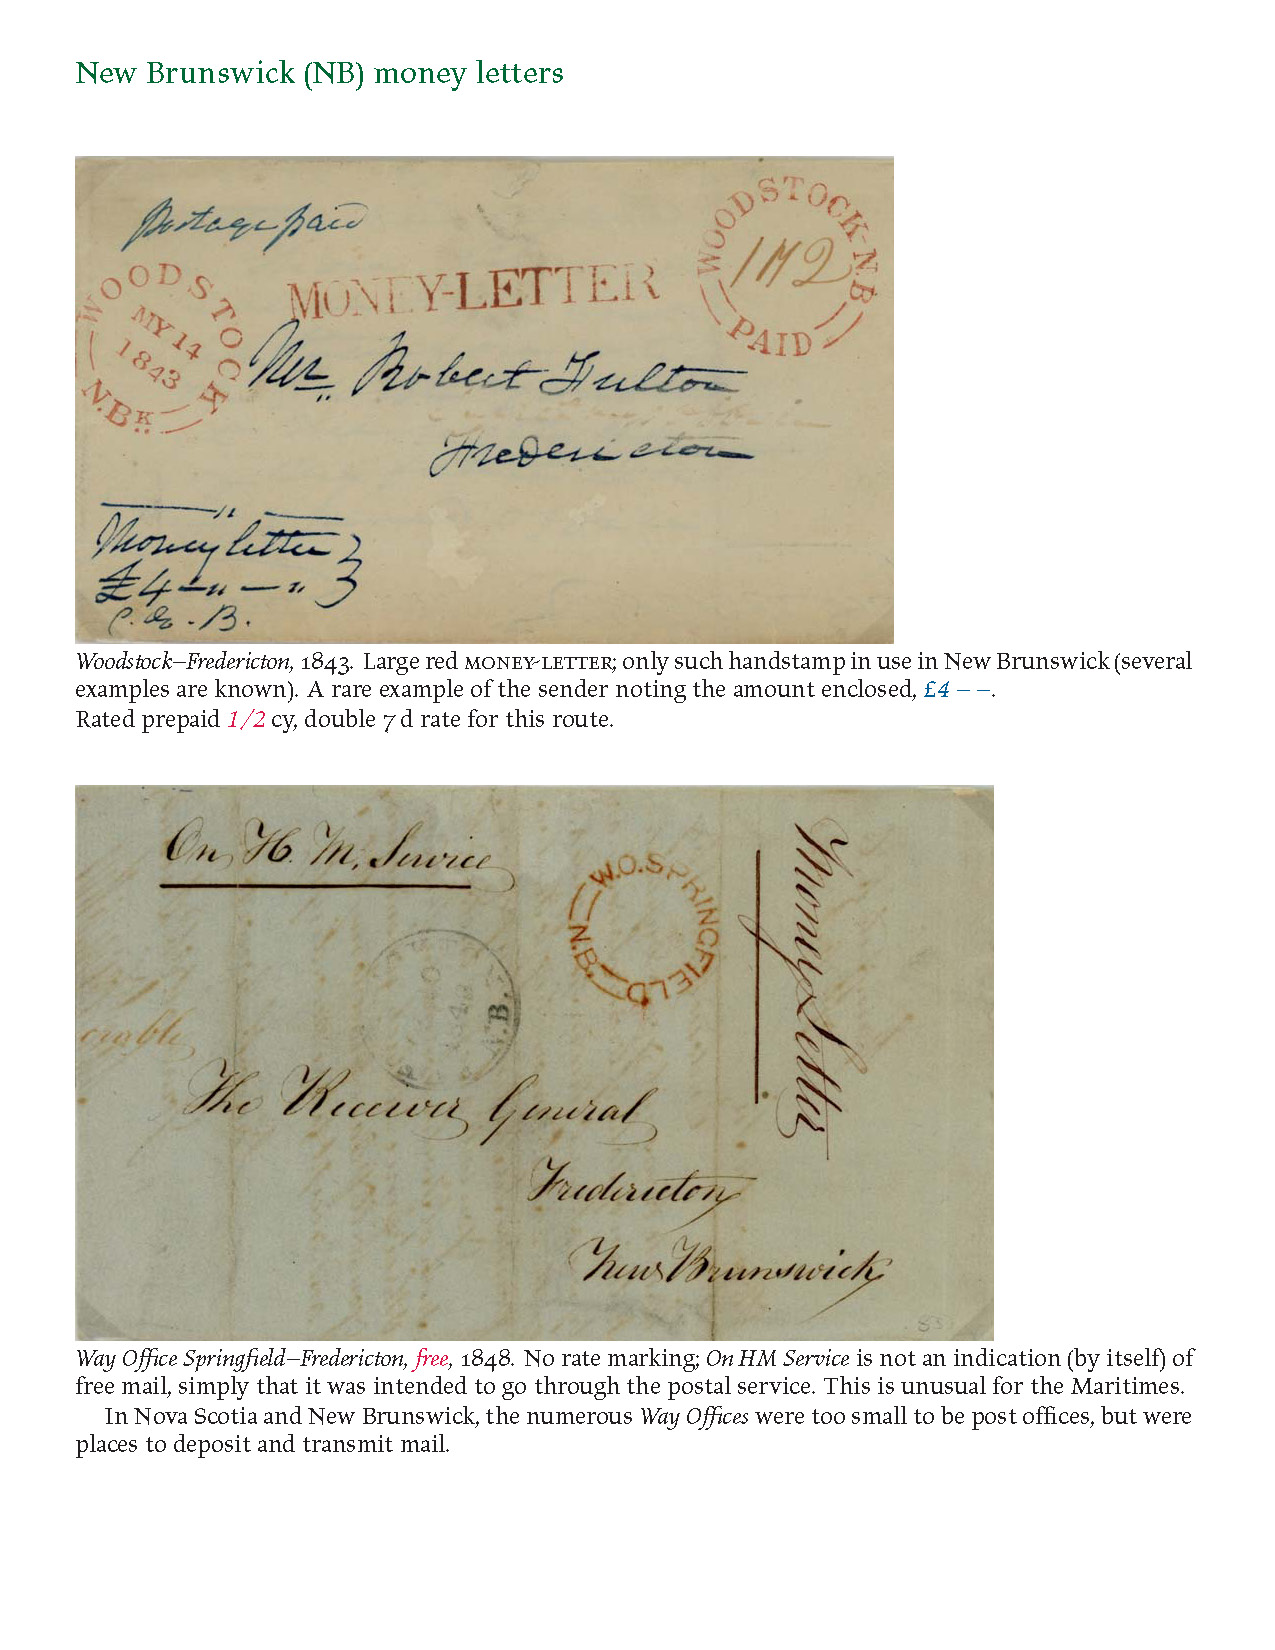 New Brunswick (NB) money letters
Postage paid
WOODSTOCK N.BK
MY 14
1843
MONEY-LETTER
WOODSTOCK-N.B
1/2
PAID
Mr. Robert Fulton
Fredericton
Money letter
£4 – " – "
Woodstock–Fredericton, 1843. Large red MONEY-LETTER; only such handstamp in use in New Brunswick (several
examples are known). A rare example of the sender noting the amount enclosed, £4 – –.
Rated prepaid 1/2 cy, double 7 d rate for this route.
On H. M. Service
W.O. SPRINGFIELD
N.B.
Money Letter
N.B.
The Receiver General
Fredericton
New Brunswick
Way Office Springfield–Fredericton, free, 1848. No rate marking; On HM Service is not an indication (by itself) of
free mail, simply that it was intended to go through the postal service. This is unusual for the Maritimes.
In Nova Scotia and New Brunswick, the numerous Way Offices were too small to be post offices, but were
places to deposit and transmit mail.